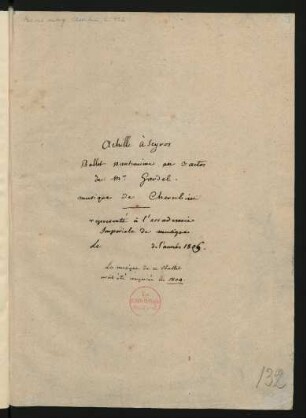 Achille à Scyros
Ballet pantomime en 3 actes
de Mr. Gardel
musique de Cherubini
représenté à l'accademie
Impériale de musique
Le de l'année 1806.
La musique de ce Ballet
avait été
132